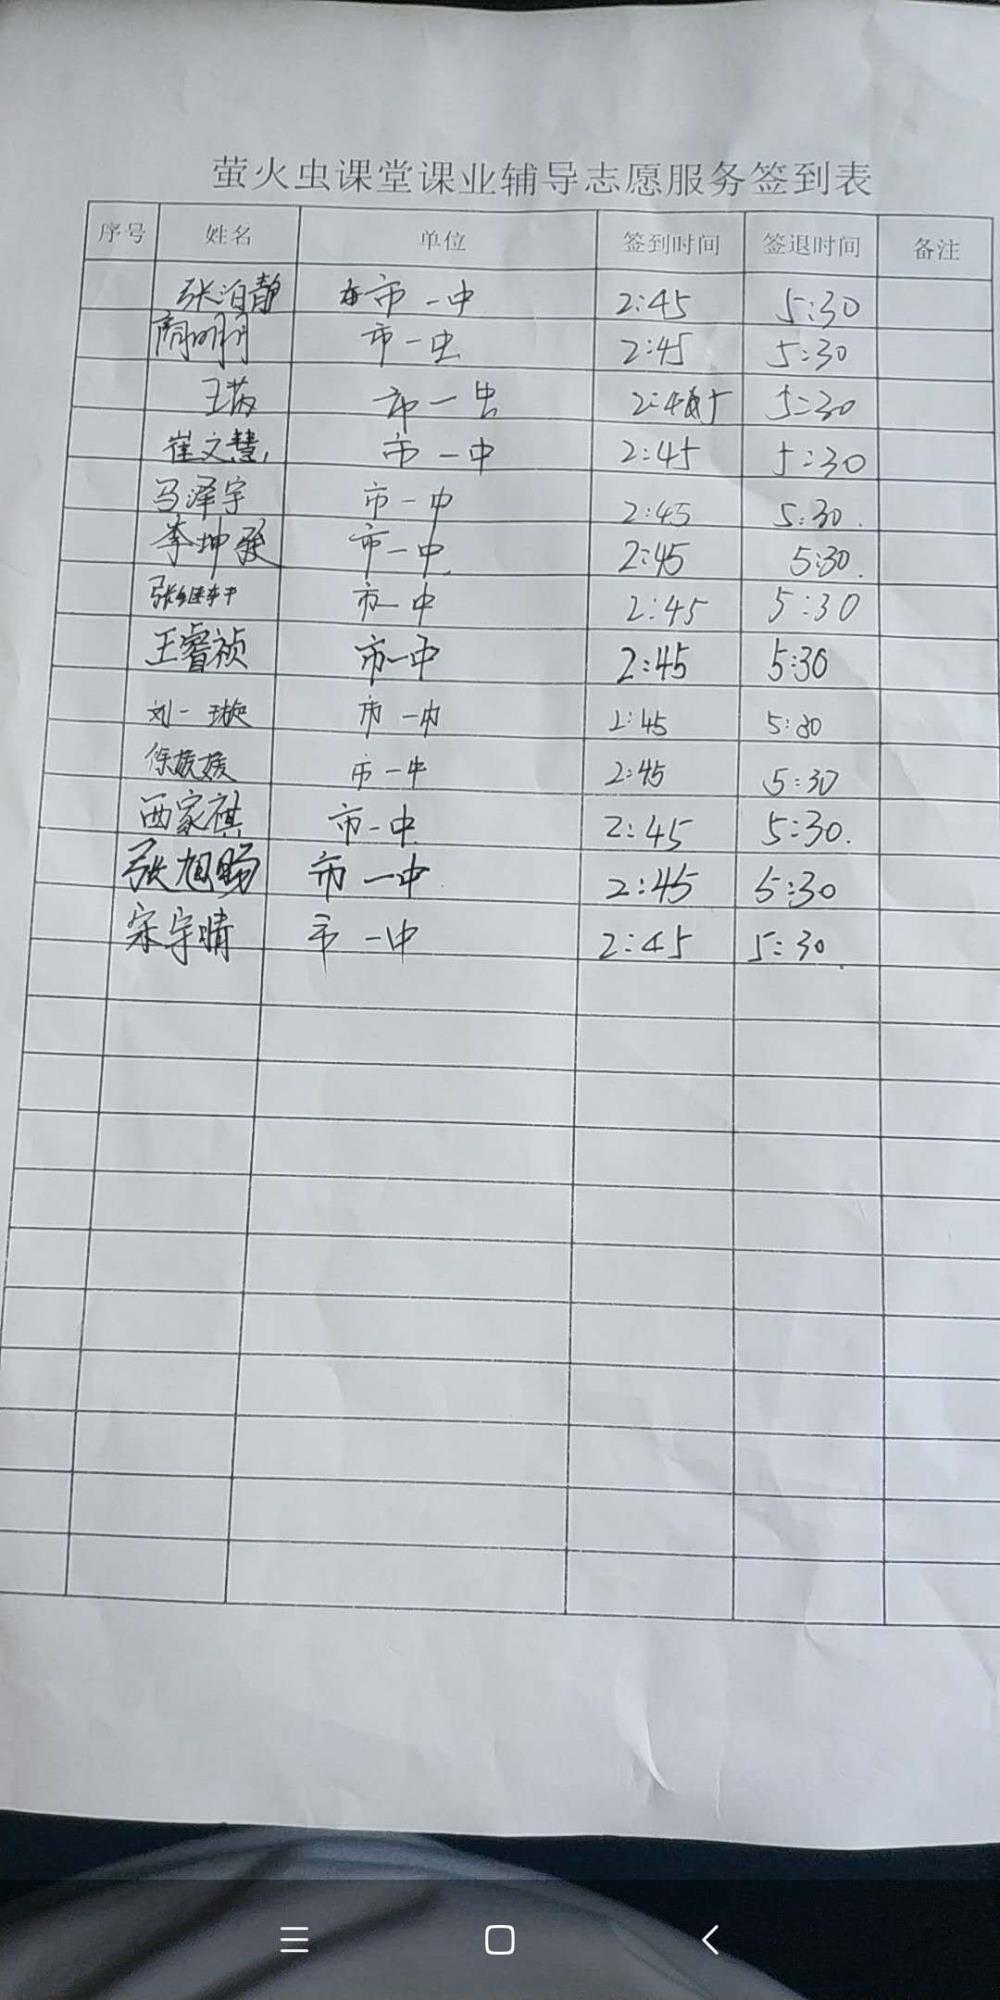 萤火虫课堂课业辅导志愿服务签到表
序号 姓名 单位 签到时间 签退时间 备注
张泊静 市一中 2:45 5:30
周明月 市一中 2:45 5:30
王芮 市一中 2:45 5:30
崔文慧 市一中 2:45 5:30
马泽宇 市一中 2:45 5:30.
李坤 市一中 2:45 5:30.
张继 市一中 2:45 5:30
王睿祯 市一中 2:45 5:30
刘一璇 市一中 2:45 5:30
徐媛媛 市一中 2:45 5:30
西家祺 市一中 2:45 5:30.
张旭旸 市一中 2:45 5:30
宋宇晴 市一中 2:45 5:30.